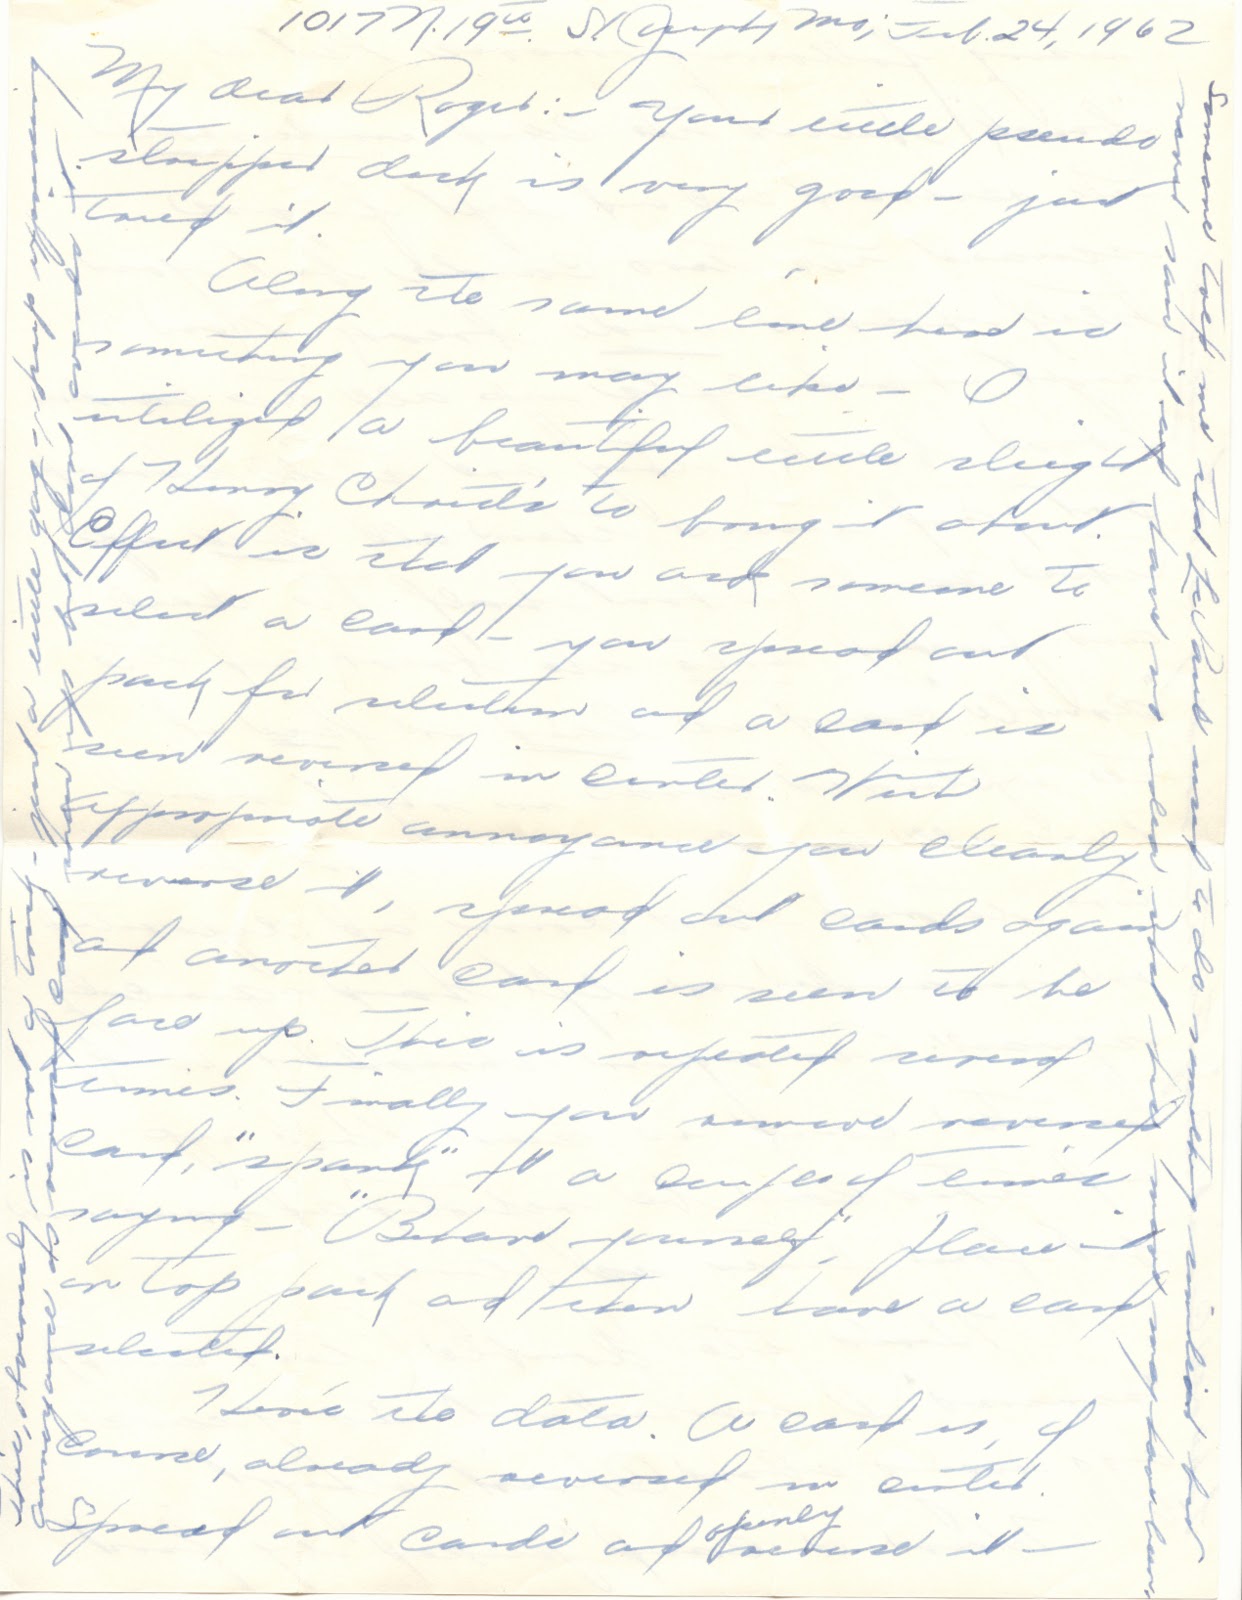 1017 N. 19th St. Joseph, Mo; Feb. 24, 1962
My dear Roger:- Your little pseudo
stripper deck is very good - just
tried it.
Along the same line here is
something you may like - I
utilized a beautiful little sleight
of Henry Christ's to bring it about.
Effect is that you ask someone to
select a card - you spread out
pack for selection and a card is
seen reversed in center. With
appropriate annoyance you clearly
reverse it, spread out cards again
and another card is seen to be
face up. This is repeated several
times. Finally you remove reversed
card, "spank" it a couple of times
saying - "Behave yourself", place it
on top pack and then have a card
selected.
Here's the data. A card is, of
course, already reversed in center.
Spread out cards and openly reverse it -
Someone told me that LePaul used to do something similar but
never saw it and have no idea what his method may have been
This, obviously, is not a trick - just a little gag-step differing